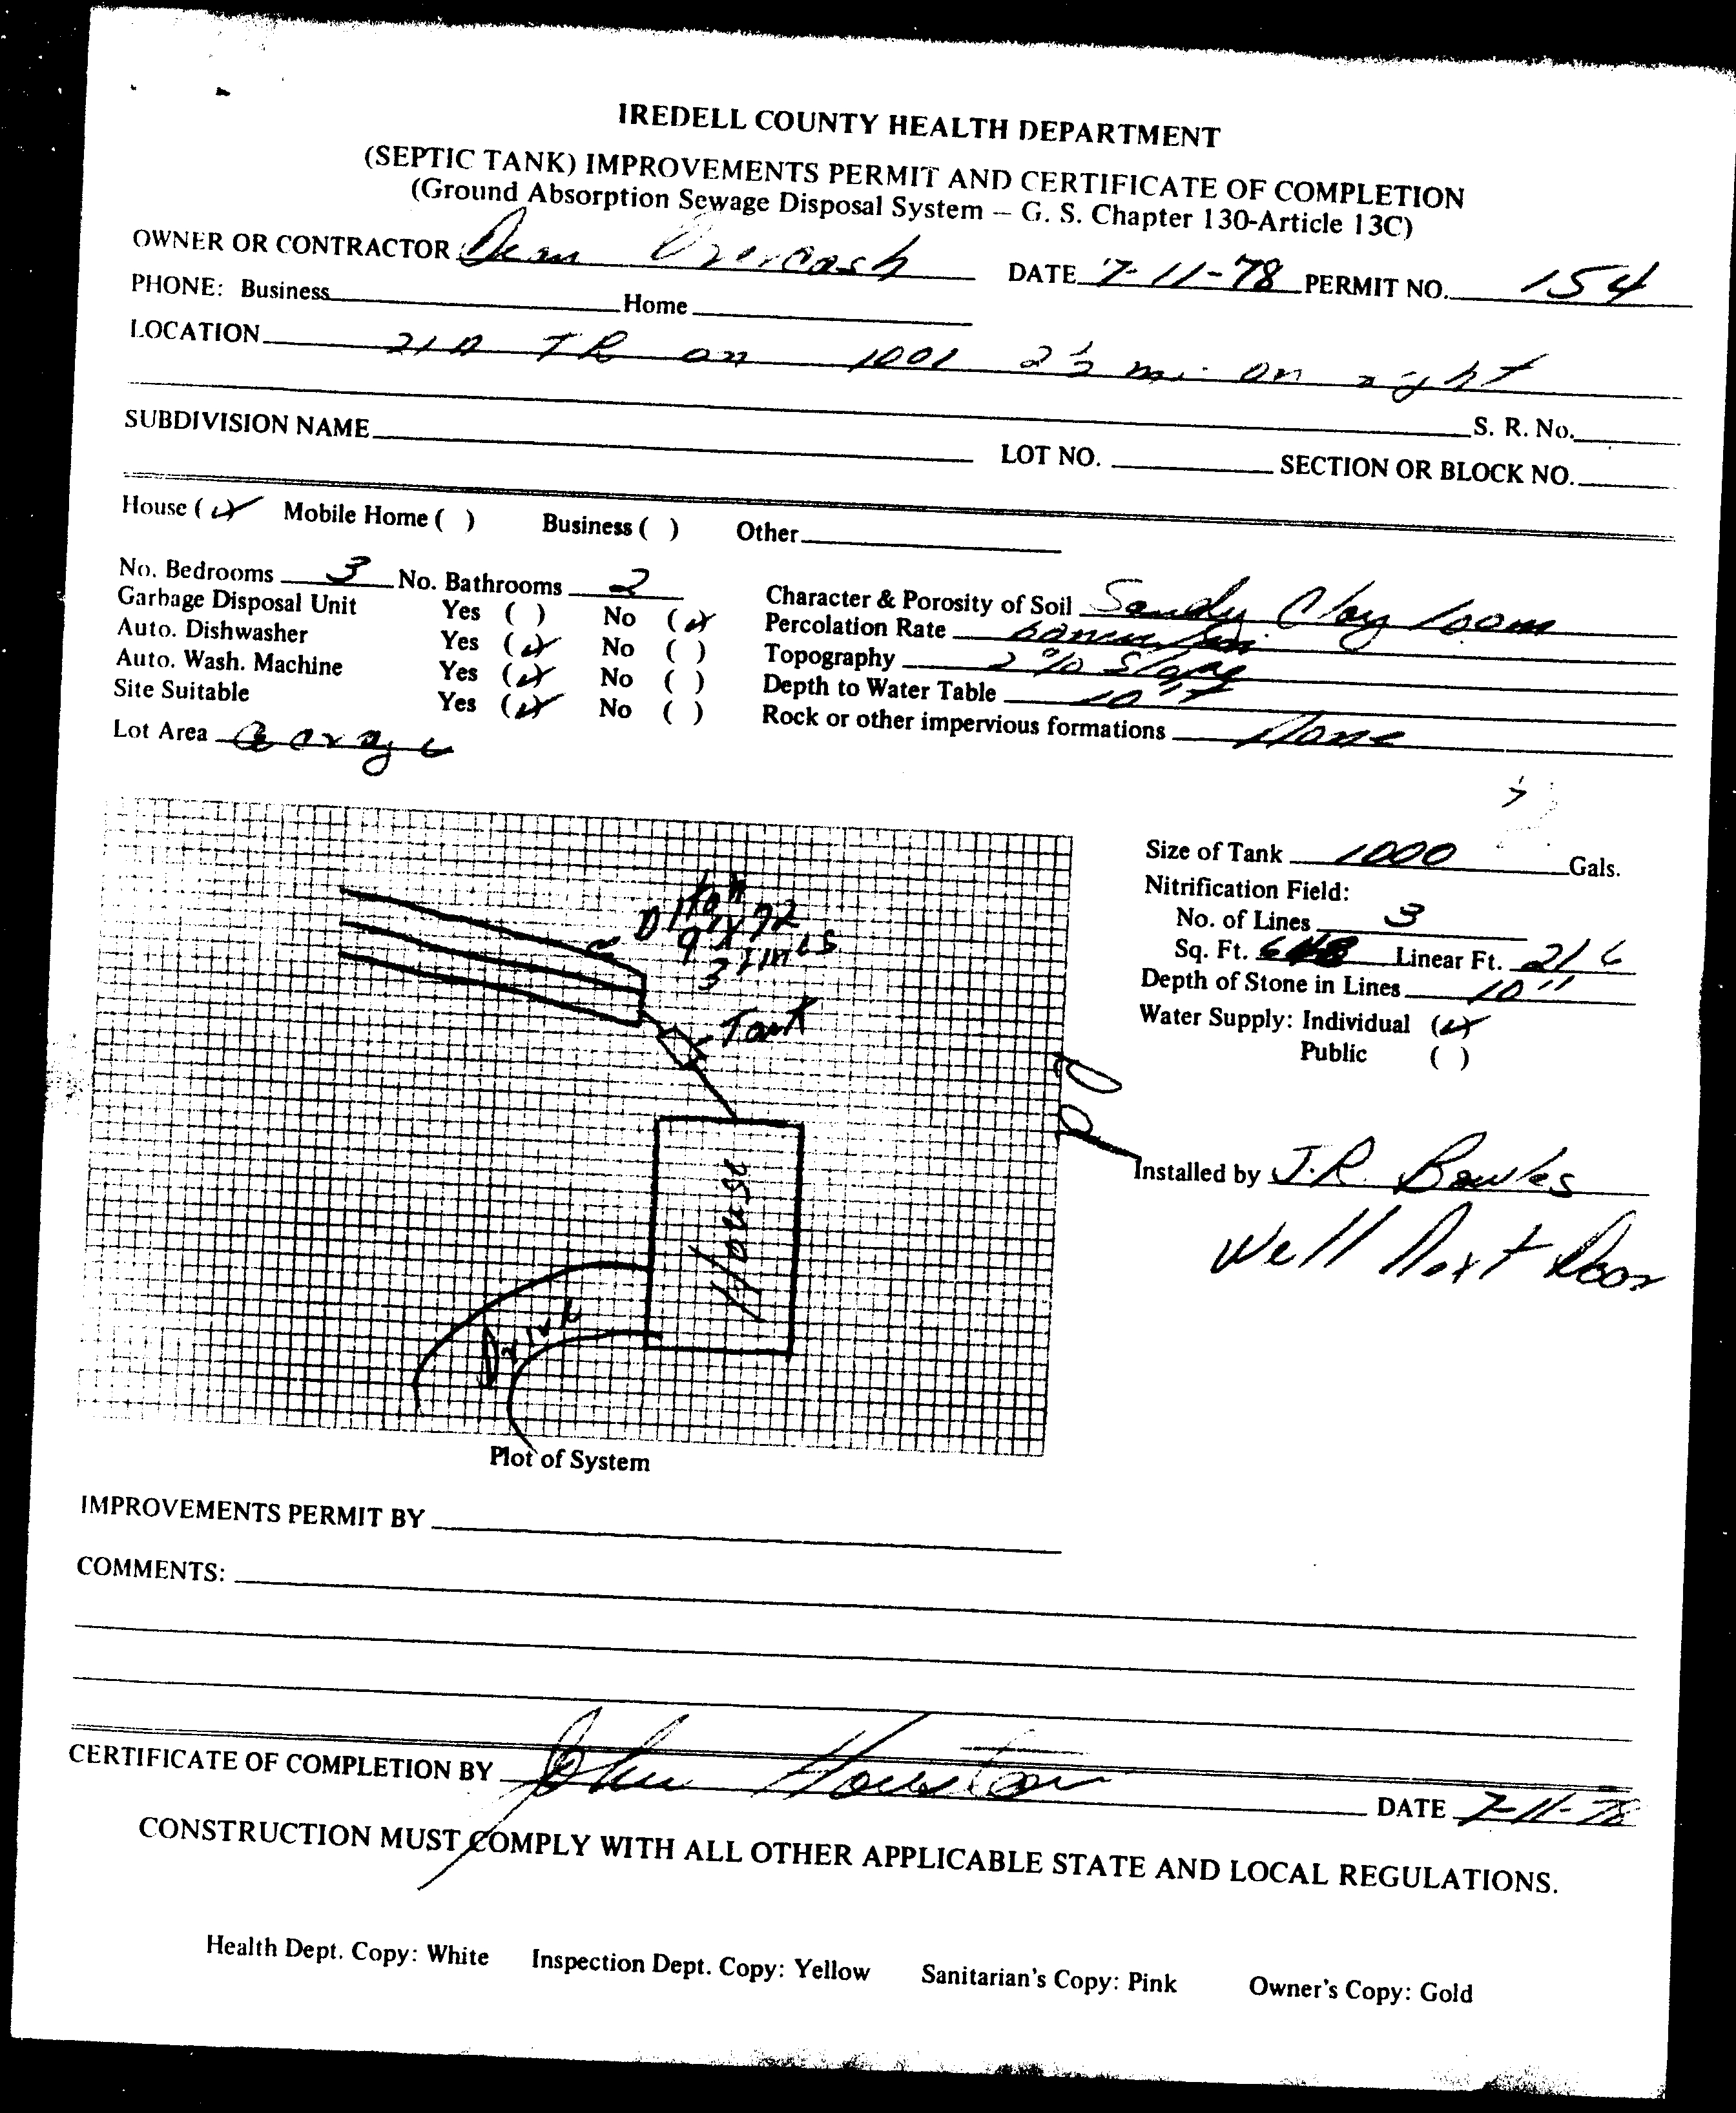 IREDELL COUNTY HEALTH DEPARTMENT
(SEPTIC TANK) IMPROVEMENTS PERMIT AND CERTIFICATE OF COMPLETION
(Ground Absorption Sewage Disposal System — G. S. Chapter 130-Article 13C)
OWNER OR CONTRACTOR Overcash DATE 7-11-78 PERMIT NO. 154
PHONE: Business Home
LOCATION 21A TR on 1001 2½ mi. on right
S. R. No.
SUBDIVISION NAME LOT NO. SECTION OR BLOCK NO.
House (✓) Mobile Home ( ) Business ( ) Other
No. Bedrooms 3 No. Bathrooms 2
Garbage Disposal Unit Yes ( ) No (✓)
Auto. Dishwasher Yes (✓) No ( )
Auto. Wash. Machine Yes (✓) No ( )
Site Suitable Yes (✓) No ( )
Lot Area
Character & Porosity of Soil Sandy Clay loam
Percolation Rate
Topography 2% Slope
Depth to Water Table 10"+
Rock or other impervious formations None
Size of Tank 1000 Gals.
Nitrification Field:
No. of Lines 3
Sq. Ft. 648 Linear Ft. 216
Depth of Stone in Lines 10"
Water Supply: Individual (✓)
Public ( )
Installed by J.R. Bowles
Well Next Door
72
3 lines
Tank
House
Drive
Plot of System
IMPROVEMENTS PERMIT BY
COMMENTS:
CERTIFICATE OF COMPLETION BY John Houston DATE 7-11-78
CONSTRUCTION MUST COMPLY WITH ALL OTHER APPLICABLE STATE AND LOCAL REGULATIONS.
Health Dept. Copy: White Inspection Dept. Copy: Yellow Sanitarian's Copy: Pink Owner's Copy: Gold